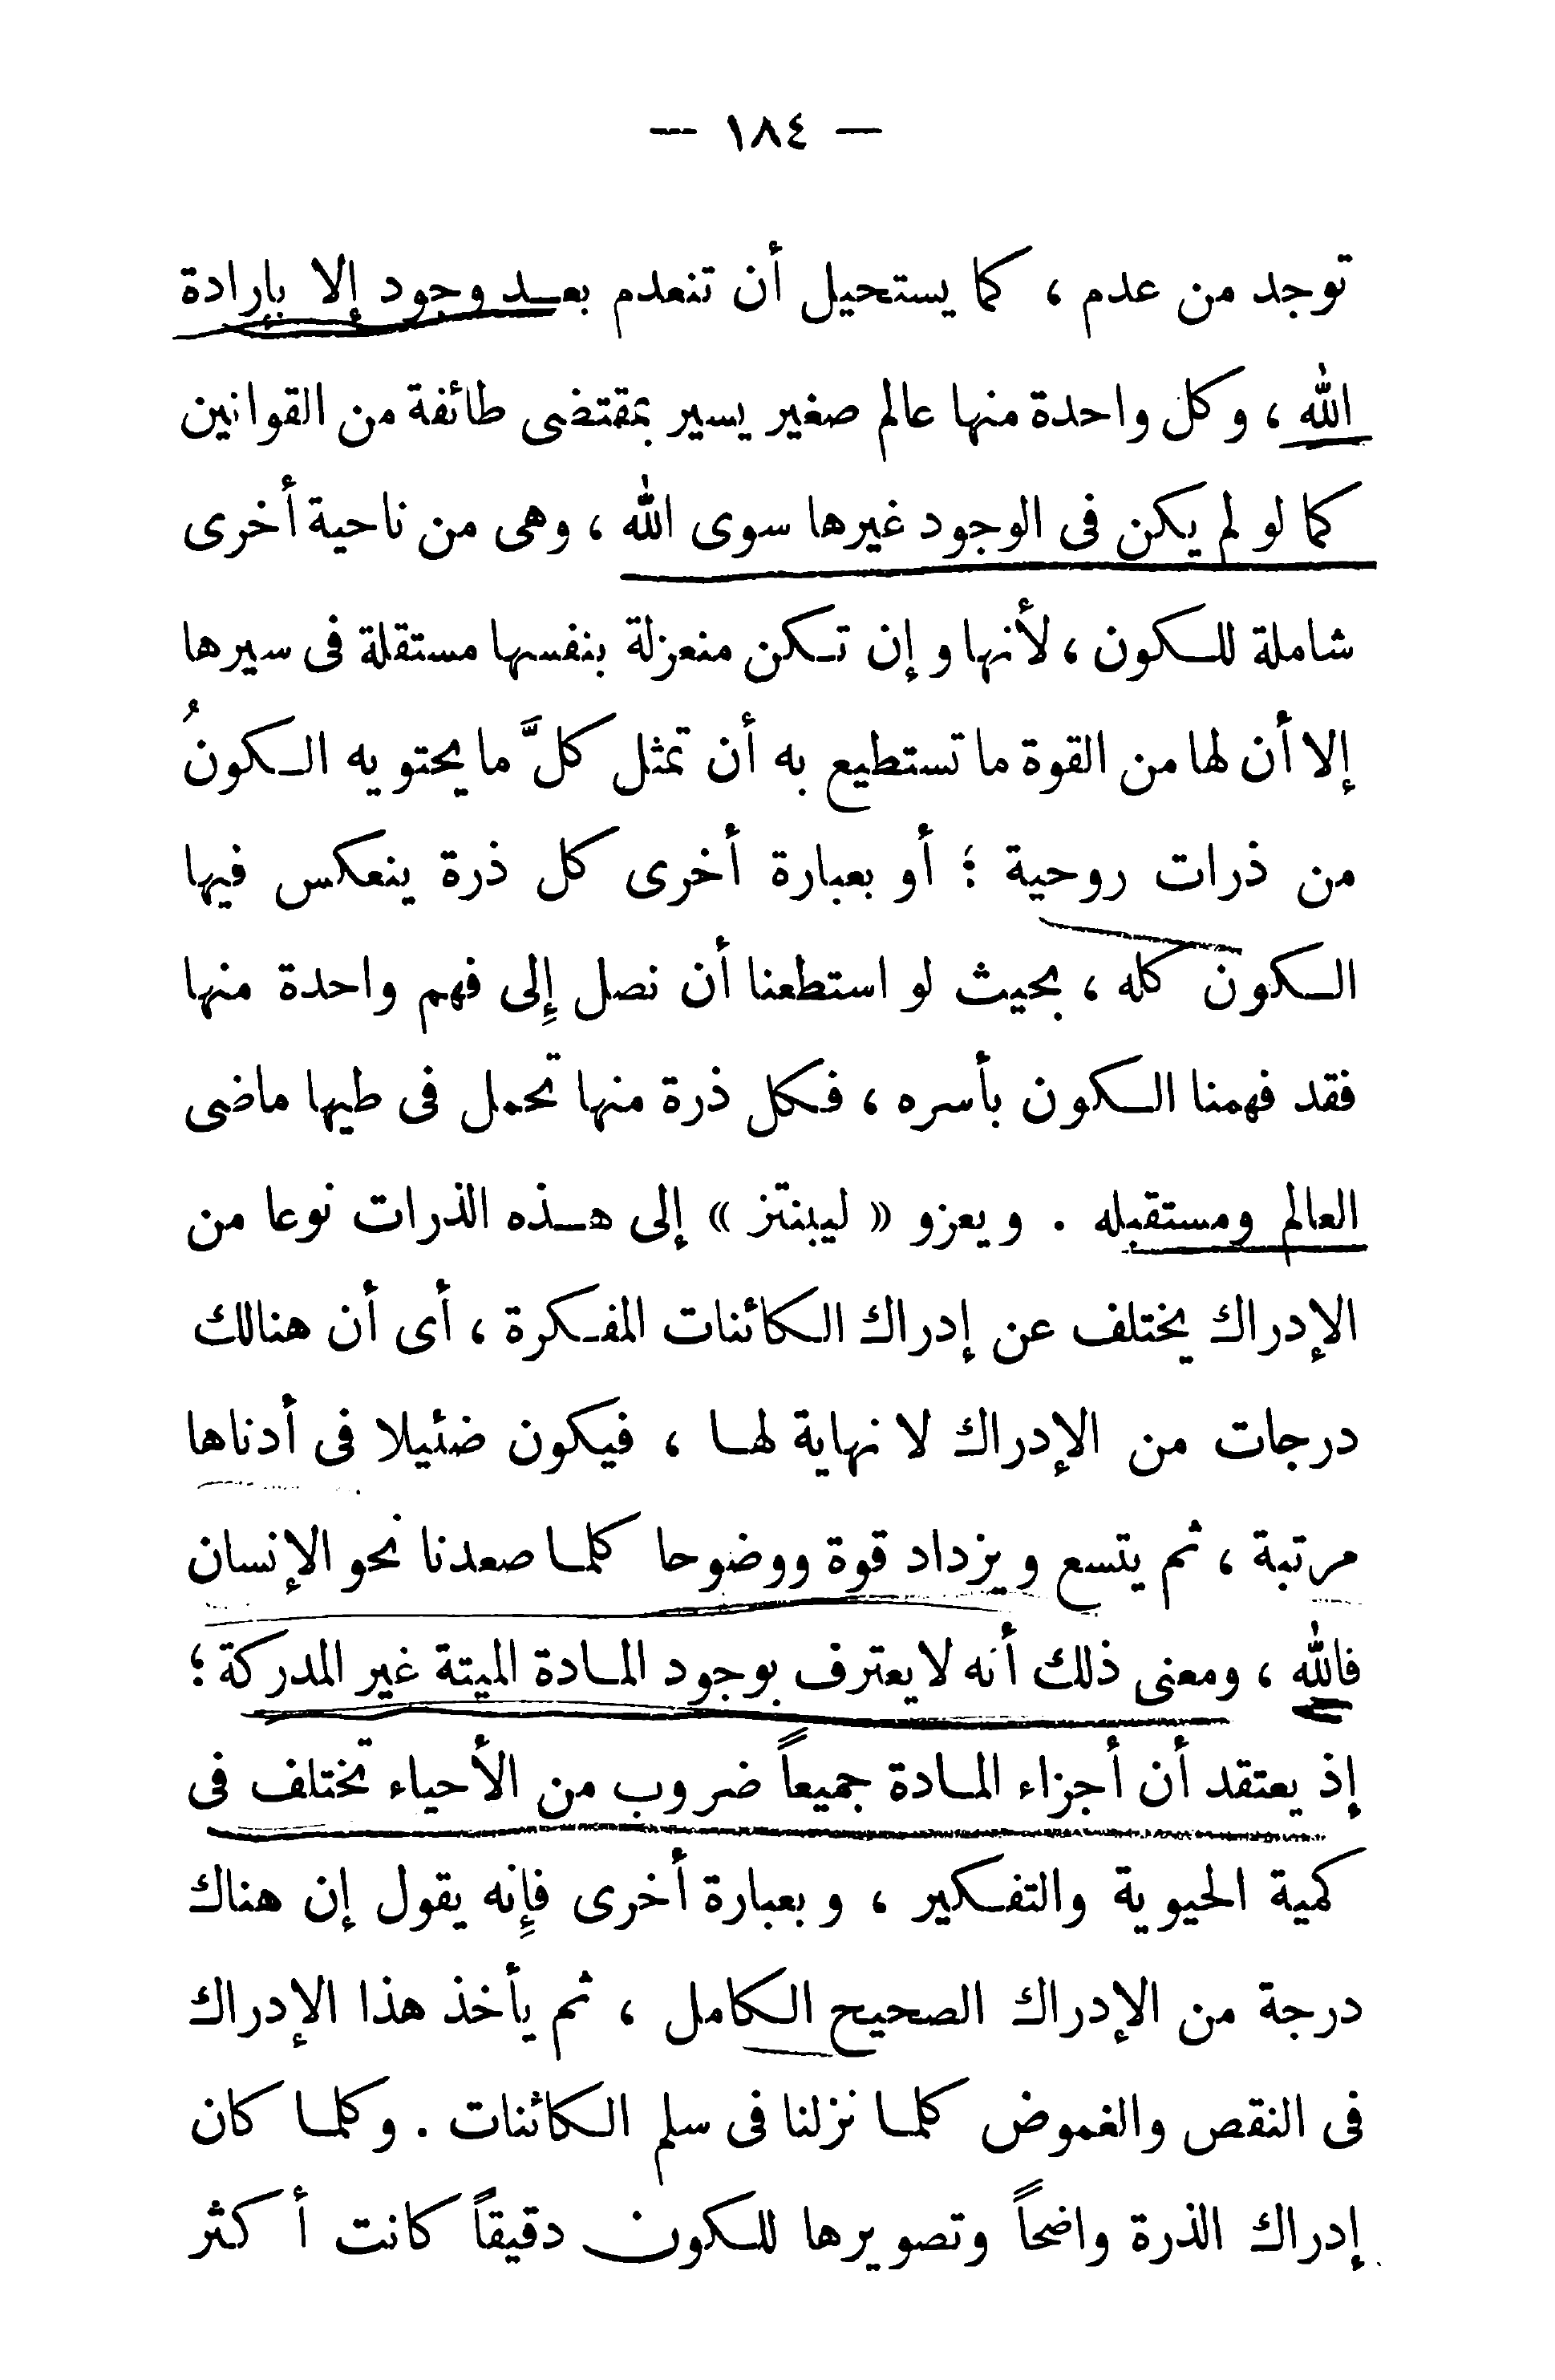 — ١٨٤ —
توجد من عدم ، كما يستحيل أن تنعدم بعد وجود إلا بإرادة
الله ، وكل واحدة منها عالم صغير يسير بمقتضى طائفة من القوانين
كما لو لم يكن فى الوجود غيرها سوى الله ، وهى من ناحية أخرى
شاملة للكون ، لأنها وإن تكن منعزلة بنفسها مستقلة فى سيرها
إلا أن لها من القوة ما تستطيع به أن تمثل كلَّ ما يحتويه الكونُ
من ذرات روحية ؛ أو بعبارة أخرى كل ذرة ينعكس فيها
الكون كله ، بحيث لو استطعنا أن نصل إِلى فهم واحدة منها
فقد فهمنا الكون بأسره ، فكل ذرة منها تحمل فى طيها ماضى
العالم ومستقبله . ويعزو « ليبنتز » إلى هذه الذرات نوعا من
الإدراك يختلف عن إدراك الكائنات المفكرة ، أى أن هنالك
درجات من الإدراك لا نهاية لها ، فيكون ضئيلا فى أدناها
مرتبة ، ثم يتسع ويزداد قوة ووضوحا كلما صعدنا نحو الإنسان
فالله ، ومعنى ذلك أنه لا يعترف بوجود المادة الميتة غير المدركة ؛
إذ يعتقد أن أجزاء المادة جميعاً ضروب من الأحياء تختلف فى
كمية الحيوية والتفكير ، وبعبارة أخرى فإِنه يقول إن هناك
درجة من الإدراك الصحيح الكامل ، ثم يأخذ هذا الإدراك
فى النقص والغموض كلما نزلنا فى سلم الكائنات . وكلما كان
إدراك الذرة واضحاً وتصويرها للكون دقيقاً كانت أكثر